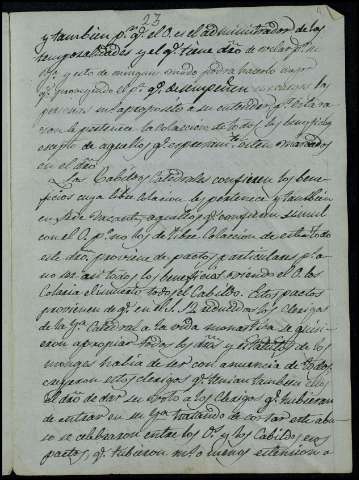 23
y tambien p.r q.e el O. es el administrador de las
temporalidades y el q.e tiene dro de velar p.r su
y esto de ninguno modo podrá hacerlo mejor
q.e p.r q.e desempeñen
personas mas aproposito a su entender q.e esta ra-
zon le pertenece la colacion de todos los beneficios
excepto de aquellos q.e espresam.te esten marcados
en el dro
Los Cabildos Catedrales confieren los bene-
ficios cuya libre colacion les pertenece y tambien
en Sede Vacante aquellos q.e confieren simul
con el O. p.o no los de libre colacion de este. todo
este dro. proviene de pactos particulares p.s a
no ser asi todos los beneficios siendo el O. los
colaria el mismo todo el Cabildo. Estos pactos
provienen de q.e en el S. 12 reducidos los clerigos
de la Yg.a Catedral a la vida monastica se quisi-
eron apropiar todos los dros y estatutos de los
monges habia de ser con anuencia de todos
creyeron estos clerigos q.e tenian tambien ellos
el dro de dar su voto a los Clerigos q.e hubieran
de entrar en su Yg.a tratando de cortar este abu-
so se celebraron entre los O.s y los Cabildos esos
pactos, q.e tubieron mas o menos estension a